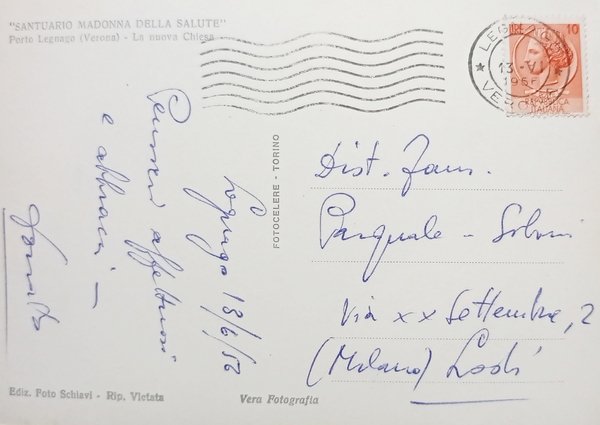 "SANTUARIO MADONNA DELLA SALUTE"
Porto Legnago (Verona) - La nuova Chiesa
LEGNAGO
13 -VI
1956
VERONA
LIRE 10
REPUBBLICA
ITALIANA
Legnago 13/6/56
Pensieri affettuosi
e abbracci -
FOTOCELERE - TORINO
Dist. Fam.
Pasquale -
Via XX Settembre, 2
(Milano) Lodi
Ediz. Foto Schiavi - Rip. Vietata
Vera Fotografia